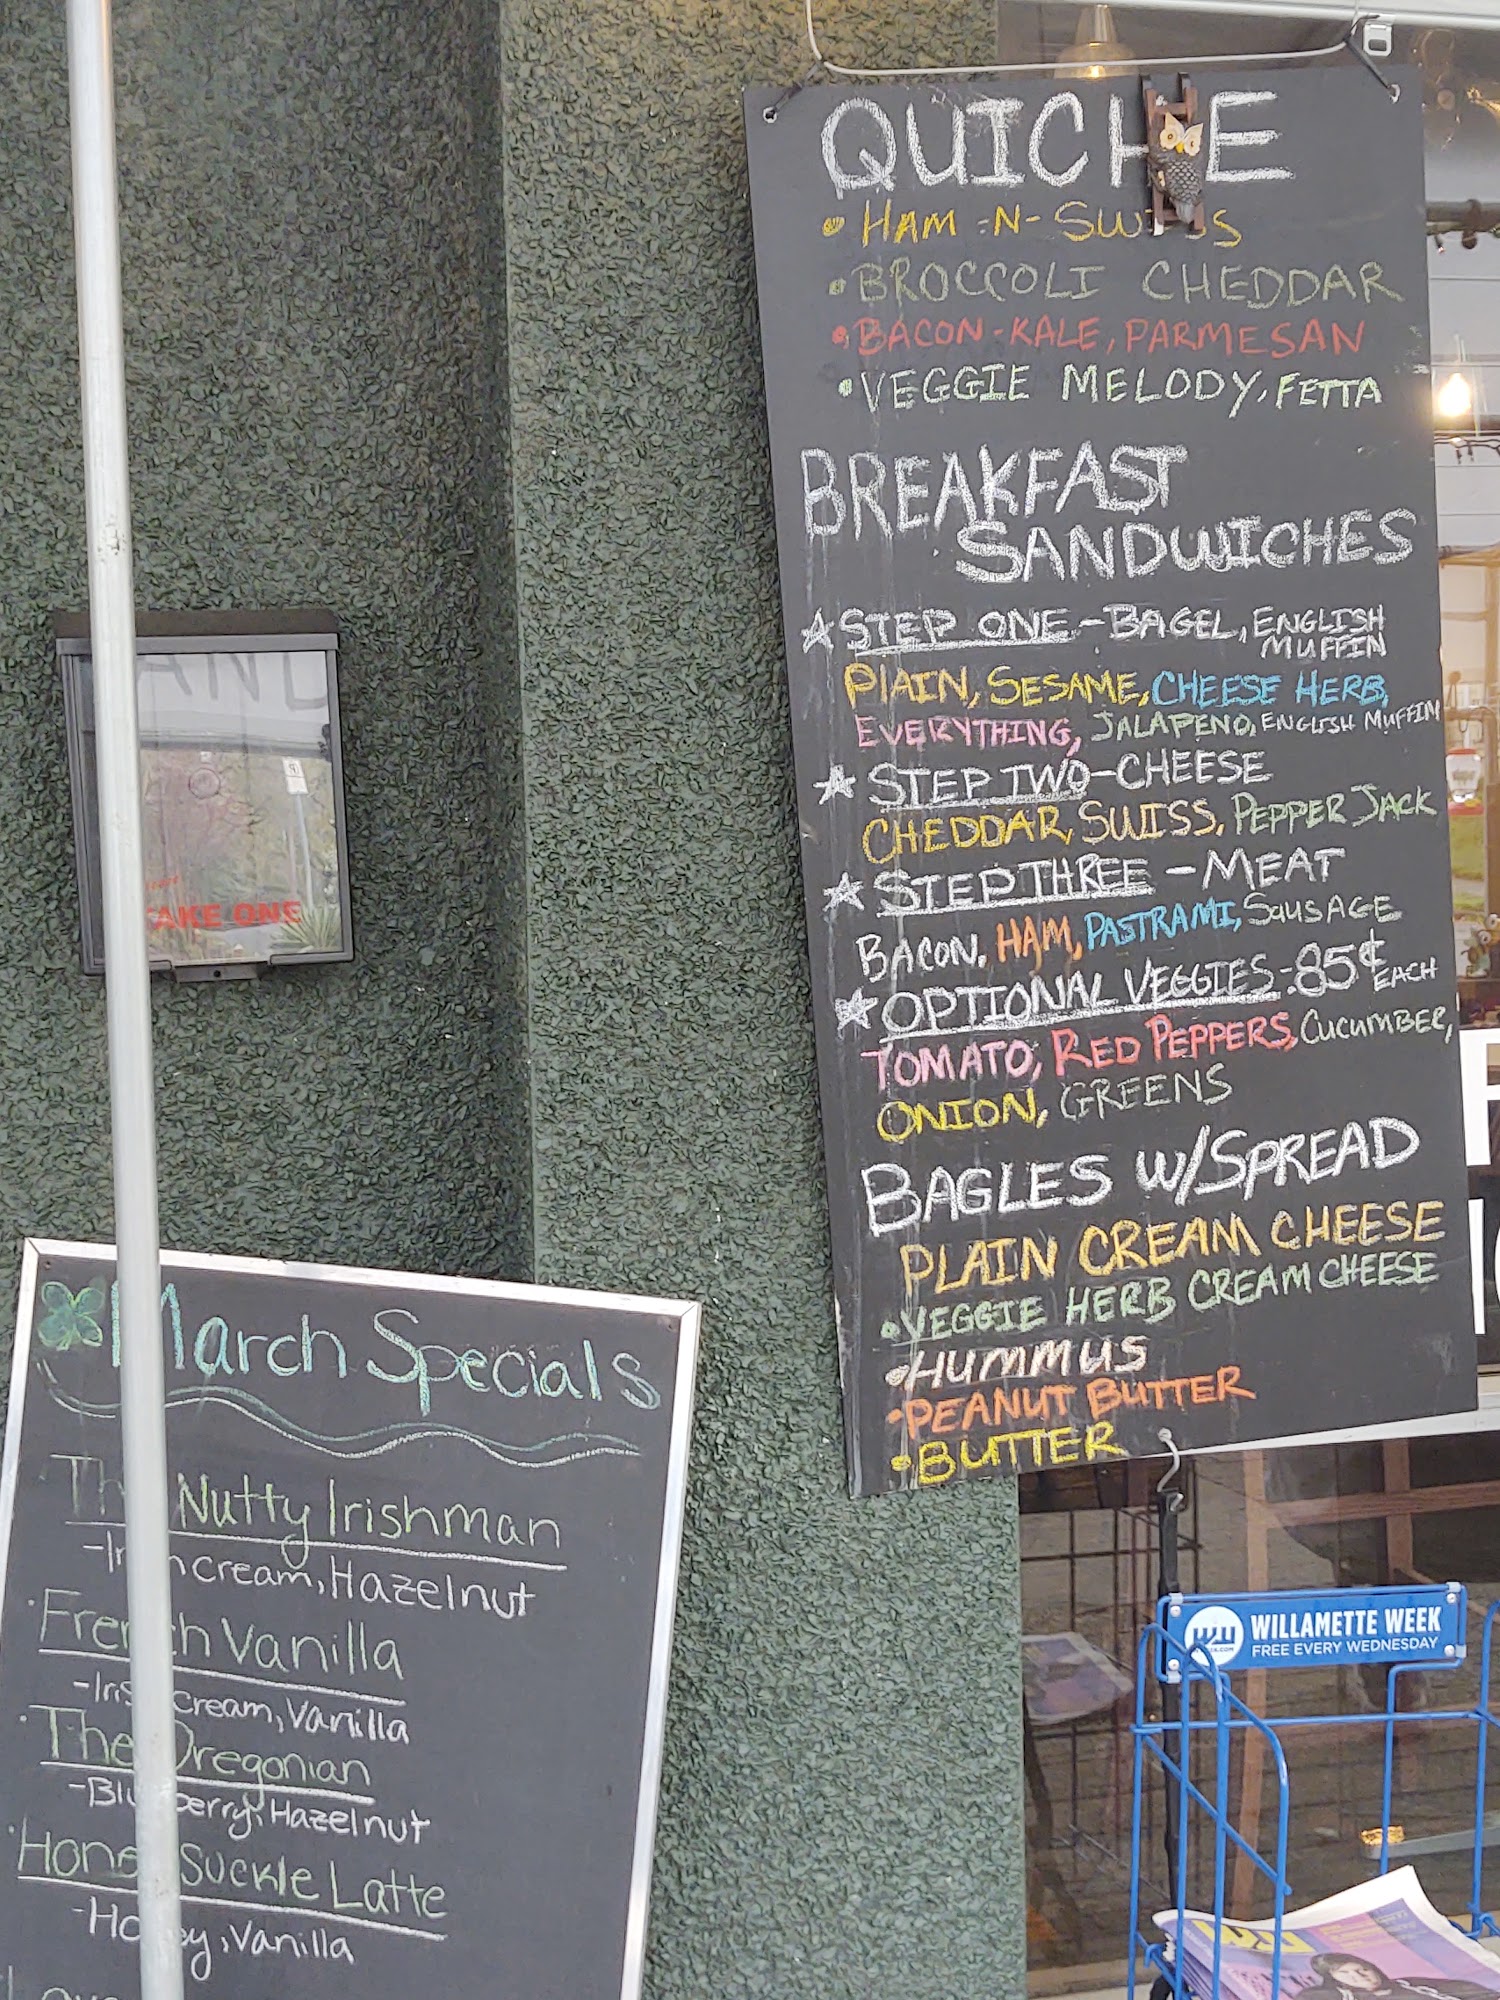 QUICHE
• HAM -N- SWISS
• BROCCOLI CHEDDAR
• BACON-KALE, PARMESAN
• VEGGIE MELODY, FETTA
BREAKFAST
SANDWICHES
☆ STEP ONE - BAGEL, ENGLISH
MUFFIN
PLAIN, SESAME, CHEESE HERB,
EVERYTHING, JALAPENO, ENGLISH MUFFIN
☆ STEP TWO - CHEESE
CHEDDAR, SWISS, PEPPER JACK
☆ STEP THREE - MEAT
BACON, HAM, PASTRAMI, SAUSAGE
☆ OPTIONAL VEGGIES - 85¢ EACH
TOMATO, RED PEPPERS, CUCUMBER,
ONION, GREENS
BAGLES W/SPREAD
PLAIN CREAM CHEESE
• VEGGIE HERB CREAM CHEESE
• HUMMUS
• PEANUT BUTTER
• BUTTER
TAKE ONE
March Specials
The Nutty Irishman
- Irish cream, Hazelnut
• French Vanilla
- Irish cream, Vanilla
• The Oregonian
- Blueberry, Hazelnut
• Honey Suckle Latte
- Honey, Vanilla
WILLAMETTE WEEK
FREE EVERY WEDNESDAY